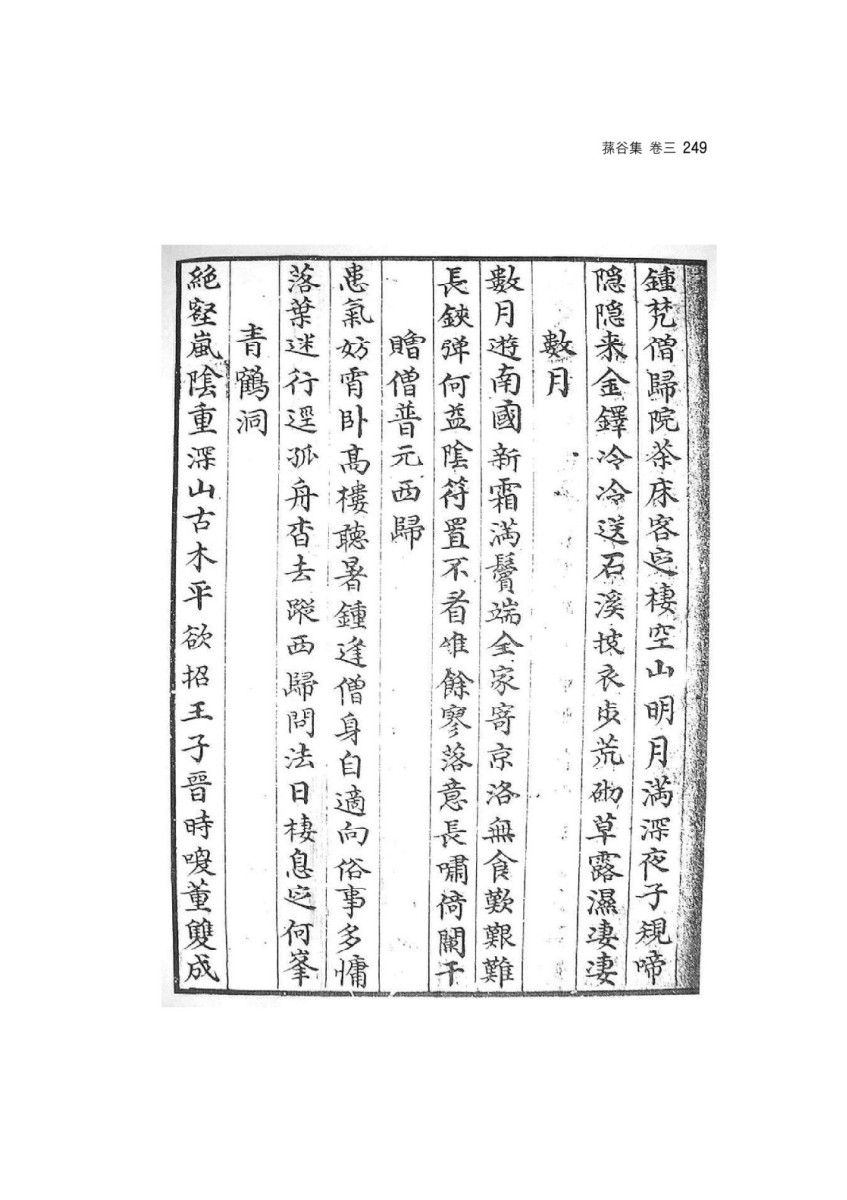 蓀谷集 卷三 249
鍾梵僧歸院茶床客㝎棲空山明月滿深夜子規啼
隠隠来金鐸冷冷送石溪披衣步荒砌草露濕凄凄
數月
數月遊南國新霜滿鬢端全家寄京洛無食歎艱難
長鋏弹何益陰符置不看惟餘寥落意長嘯倚闌干
贈僧普元西歸
患氣妨宵卧髙樓聽暑鍾逢僧身自適向俗事多慵
落葉迷行逕孤舟杳去蹤西歸問法日棲息㝎何峯
青鶴洞
絶壑嵐陰重深山古木平欲招王子晉時喚董雙成